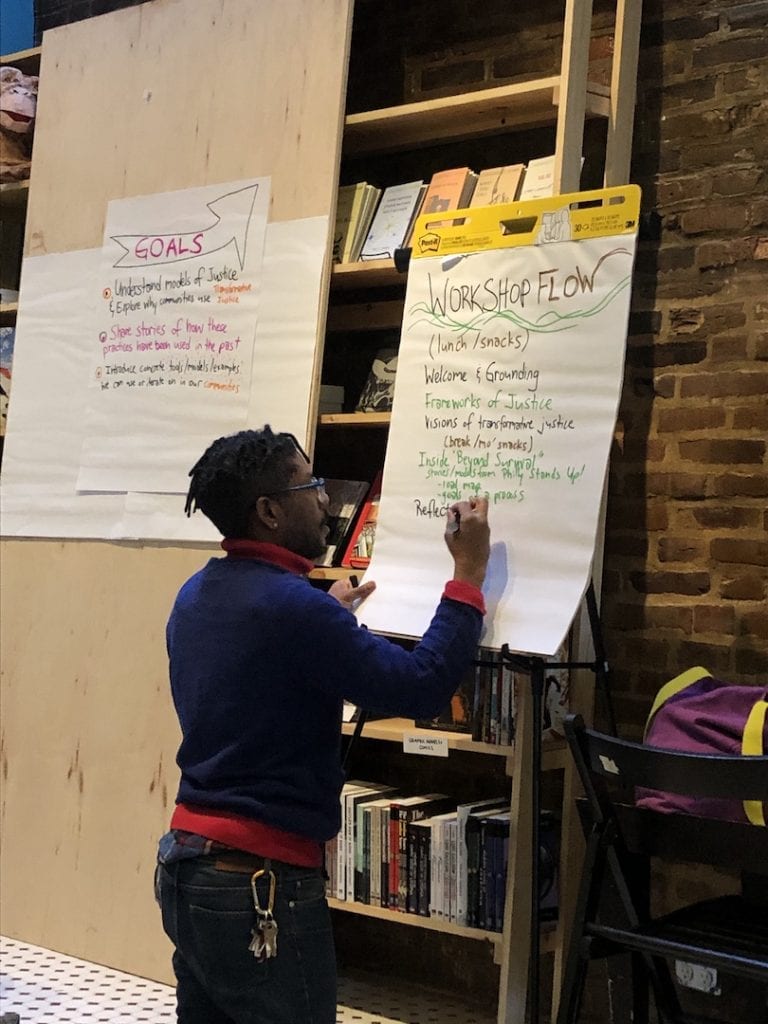 GOALS
Understand models of Justice
& Explore why communities use Transformative Justice
Share stories of how these
practices have been used in the past
Introduce concrete tools/models/examples
we can use or iterate on in our communities
Post-it
30
3M
WORKSHOP FLOW
(lunch/snacks)
Welcome & Grounding
Frameworks of Justice
Visions of transformative justice
(break/mo' snacks)
Inside "Beyond Survival"
stories/models from Philly Stands Up!
- road map
- goals of a process
Reflect
GRAPHIC NOVELS &
COMICS